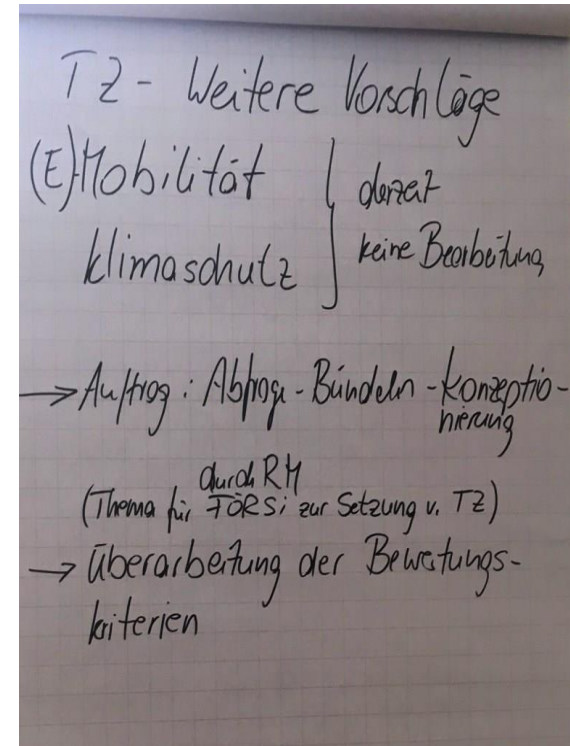 TZ - Weitere Vorschläge
(E)Mobilität
Klimaschutz
derzeit
keine Bearbeitung
→ Auftrag: Abfrage - Bündeln - Konzeptio-
nierung
durch RM
(Thema für FÖRSi zur Setzung v. TZ)
→ Überarbeitung der Bewertungs-
kriterien